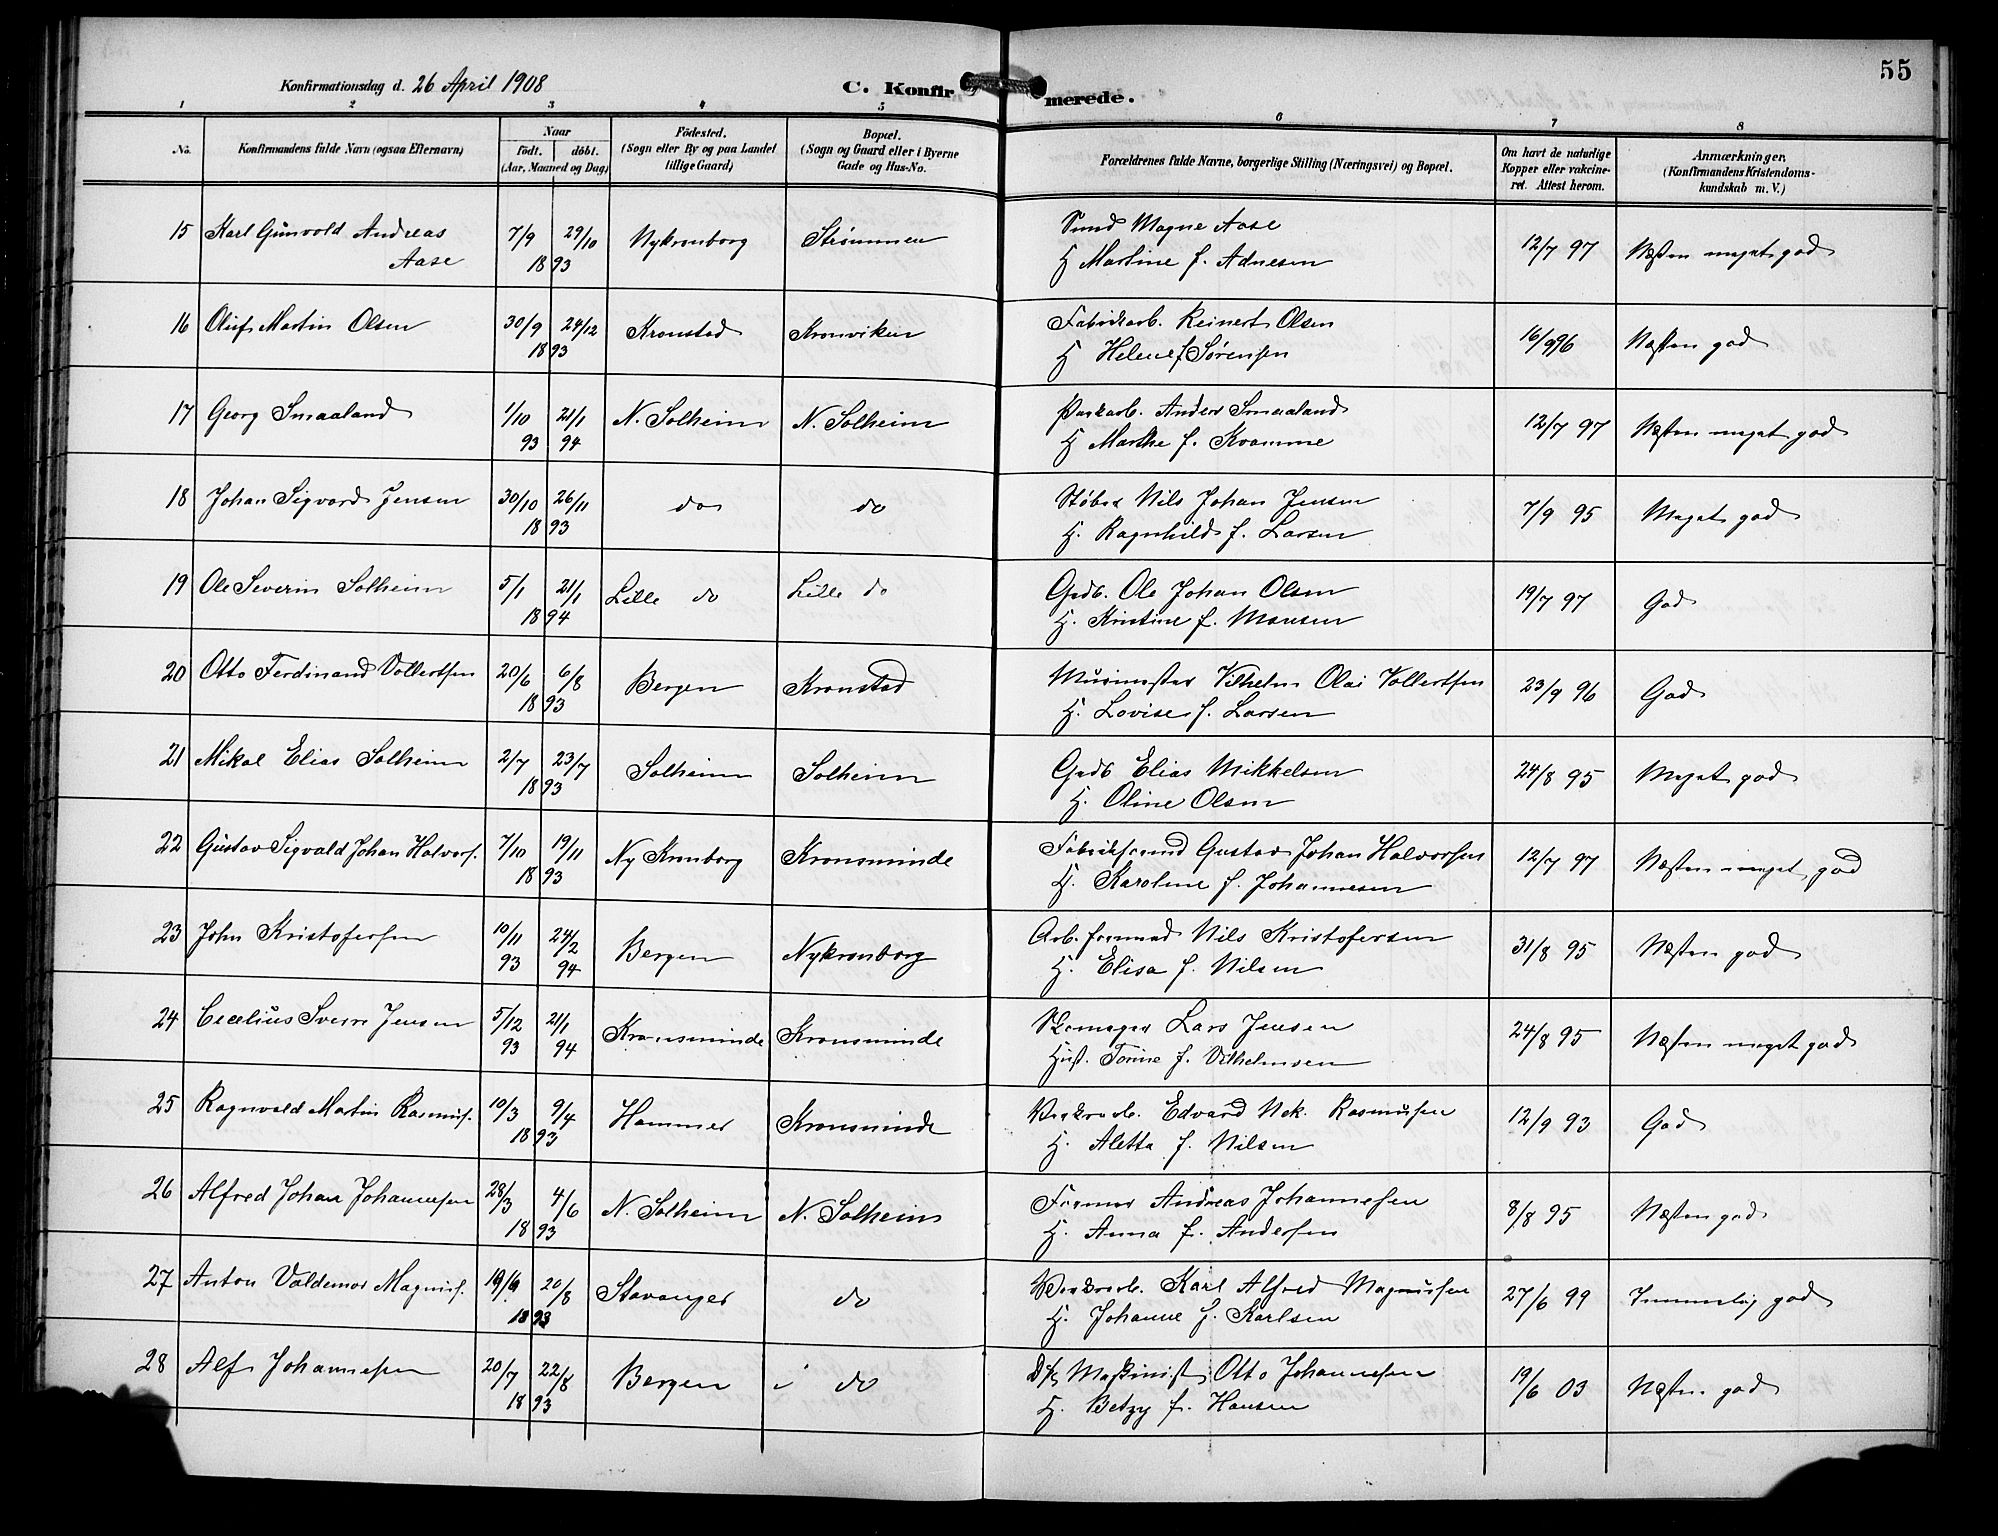 55
Konfirmationsdag d. 26 April 1908
C. Konfirmerede.
1 2 3 4 5 6 7 8
No. Konfirmandens fulde Navn (ogsaa Efternavn) Naar födt. döbt. (Aar, Maaned og Dag) Födested. (Sogn eller By og paa Landet tillige Gaard) Bopæl. (Sogn og Gaard eller i Byerne Gade og Hus-No. Forældrenes fulde Navne, borgerlige Stilling (Næringsvei) og Bopæl. Om havt de naturlige Kopper eller vakcineret. Attest herom. Anmærkninger. (Konfirmandens Kristendomskundskab m. V.)
15 Karl Gunvold Andreas Aase 7/9 29/10 1893 Nykronborg Strømmen Magne Aase 12/7 97 Næsten meget god
H Martine f. Adnesen
16 Oluf Martin Olsen 30/9 24/12 1893 Kronstad Kronviken Fabrikarb. Reinert Olsen 16/9 96 Næsten god
H Helene f Sørensen
17 Georg Smaaland 1/10 93 21/1 94 N. Solheim N. Solheim Anders Smaaland 12/7 97 Næsten meget god
H Marthe f. Kvamme
18 Johan Sigvard Jensen 30/10 26/11 1893 do do Støber Nils Johan Jensen 7/9 95 Meget god
H. Ragnhild f. Larsen
19 Ole Severin Solheim 5/1 21/1 1894 Lille do Lille do Gdb. Ole Johan Olsen 19/7 97 God
H. Kristine f. Monsen
20 Otto Ferdinand Vollertsen 20/6 6/8 1893 Bergen Kronstad Murmester Vilhelm Olai Vollertsen 23/9 96 God
H. Lovise f. Larsen
21 Mikal Elias Solheim 2/7 23/7 1893 Solheim Solheim Gdb Elias Mikkelsen 24/8 95 Meget god
H. Oline Olsen
22 Gustav Sigvald Johan Halvors. 7/10 19/11 1893 Ny Kronborg Kronsminde Fabrikformd Gustav Johan Halvorsen 12/7 97 Næsten meget god
H. Karoline f. Johannesen
23 John Kristofersen 10/11 93 24/2 94 Bergen Nykronborg Arb. formand Nils Kristofersen 31/8 95 Næsten god
H. Elisa f. Nilsen
24 Cecelius Sverre Jensen 5/12 93 21/1 94 Kronsminde Kronsminde Skomager Lars Jensen 24/8 95 Næsten meget god
Hust. Torine f. Vilhelmsen
25 Ragnvald Martin Rasmus. 10/3 9/4 1893 Hammer Kronsminde Edvard Nek. Rasmusen 12/9 93 God
H. Aletta f. Nilsen
26 Alfred Johan Johannesen 28/3 4/6 1893 N. Solheim N. Solheim Former Andreas Johannesen 8/8 95 Næsten god
H. Anna f. Andersen
27 Anton Valdemar Magnus. 19/6 20/8 1893 Stavanger do Karl Alfred Magnussen 27/6 99 Temmelig god
H. Johanne f. Karlsen
28 Alf Johannesen 20/7 22/8 1893 Bergen do Maskinist Otto Johannesen 19/6 03 Næsten god
H. Betzy f. Hansen